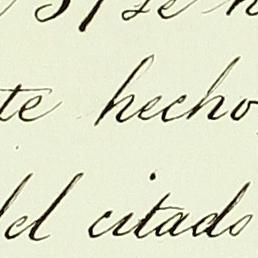 se
te hecho
del citado